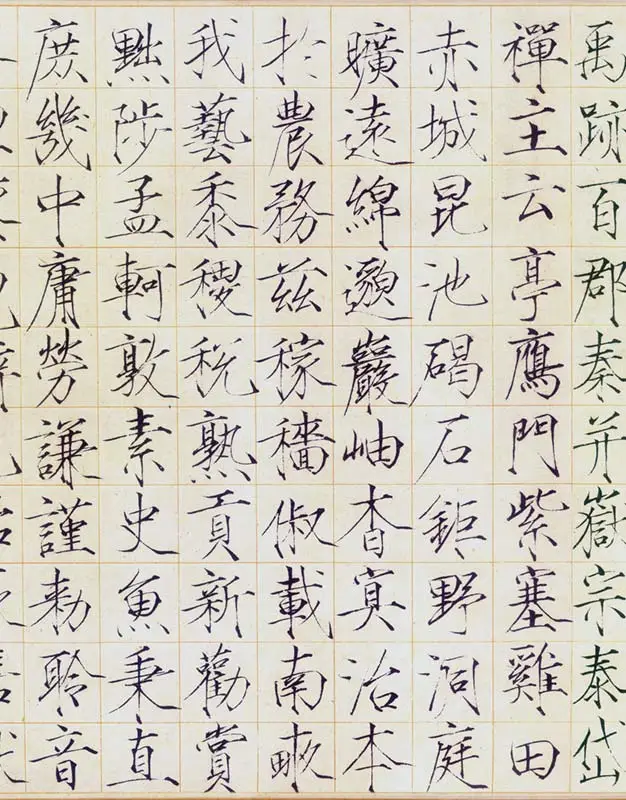 禹跡百郡秦并嶽宗泰岱
禪主云亭鴈門紫塞雞田
赤城昆池碣石鉅野洞庭
曠遠綿邈巖岫杳冥治本
於農務茲稼穡俶載南畝
我藝黍稷稅熟貢新勸賞
黜陟孟軻敦素史魚秉直
庶幾中庸勞謙謹勑聆音